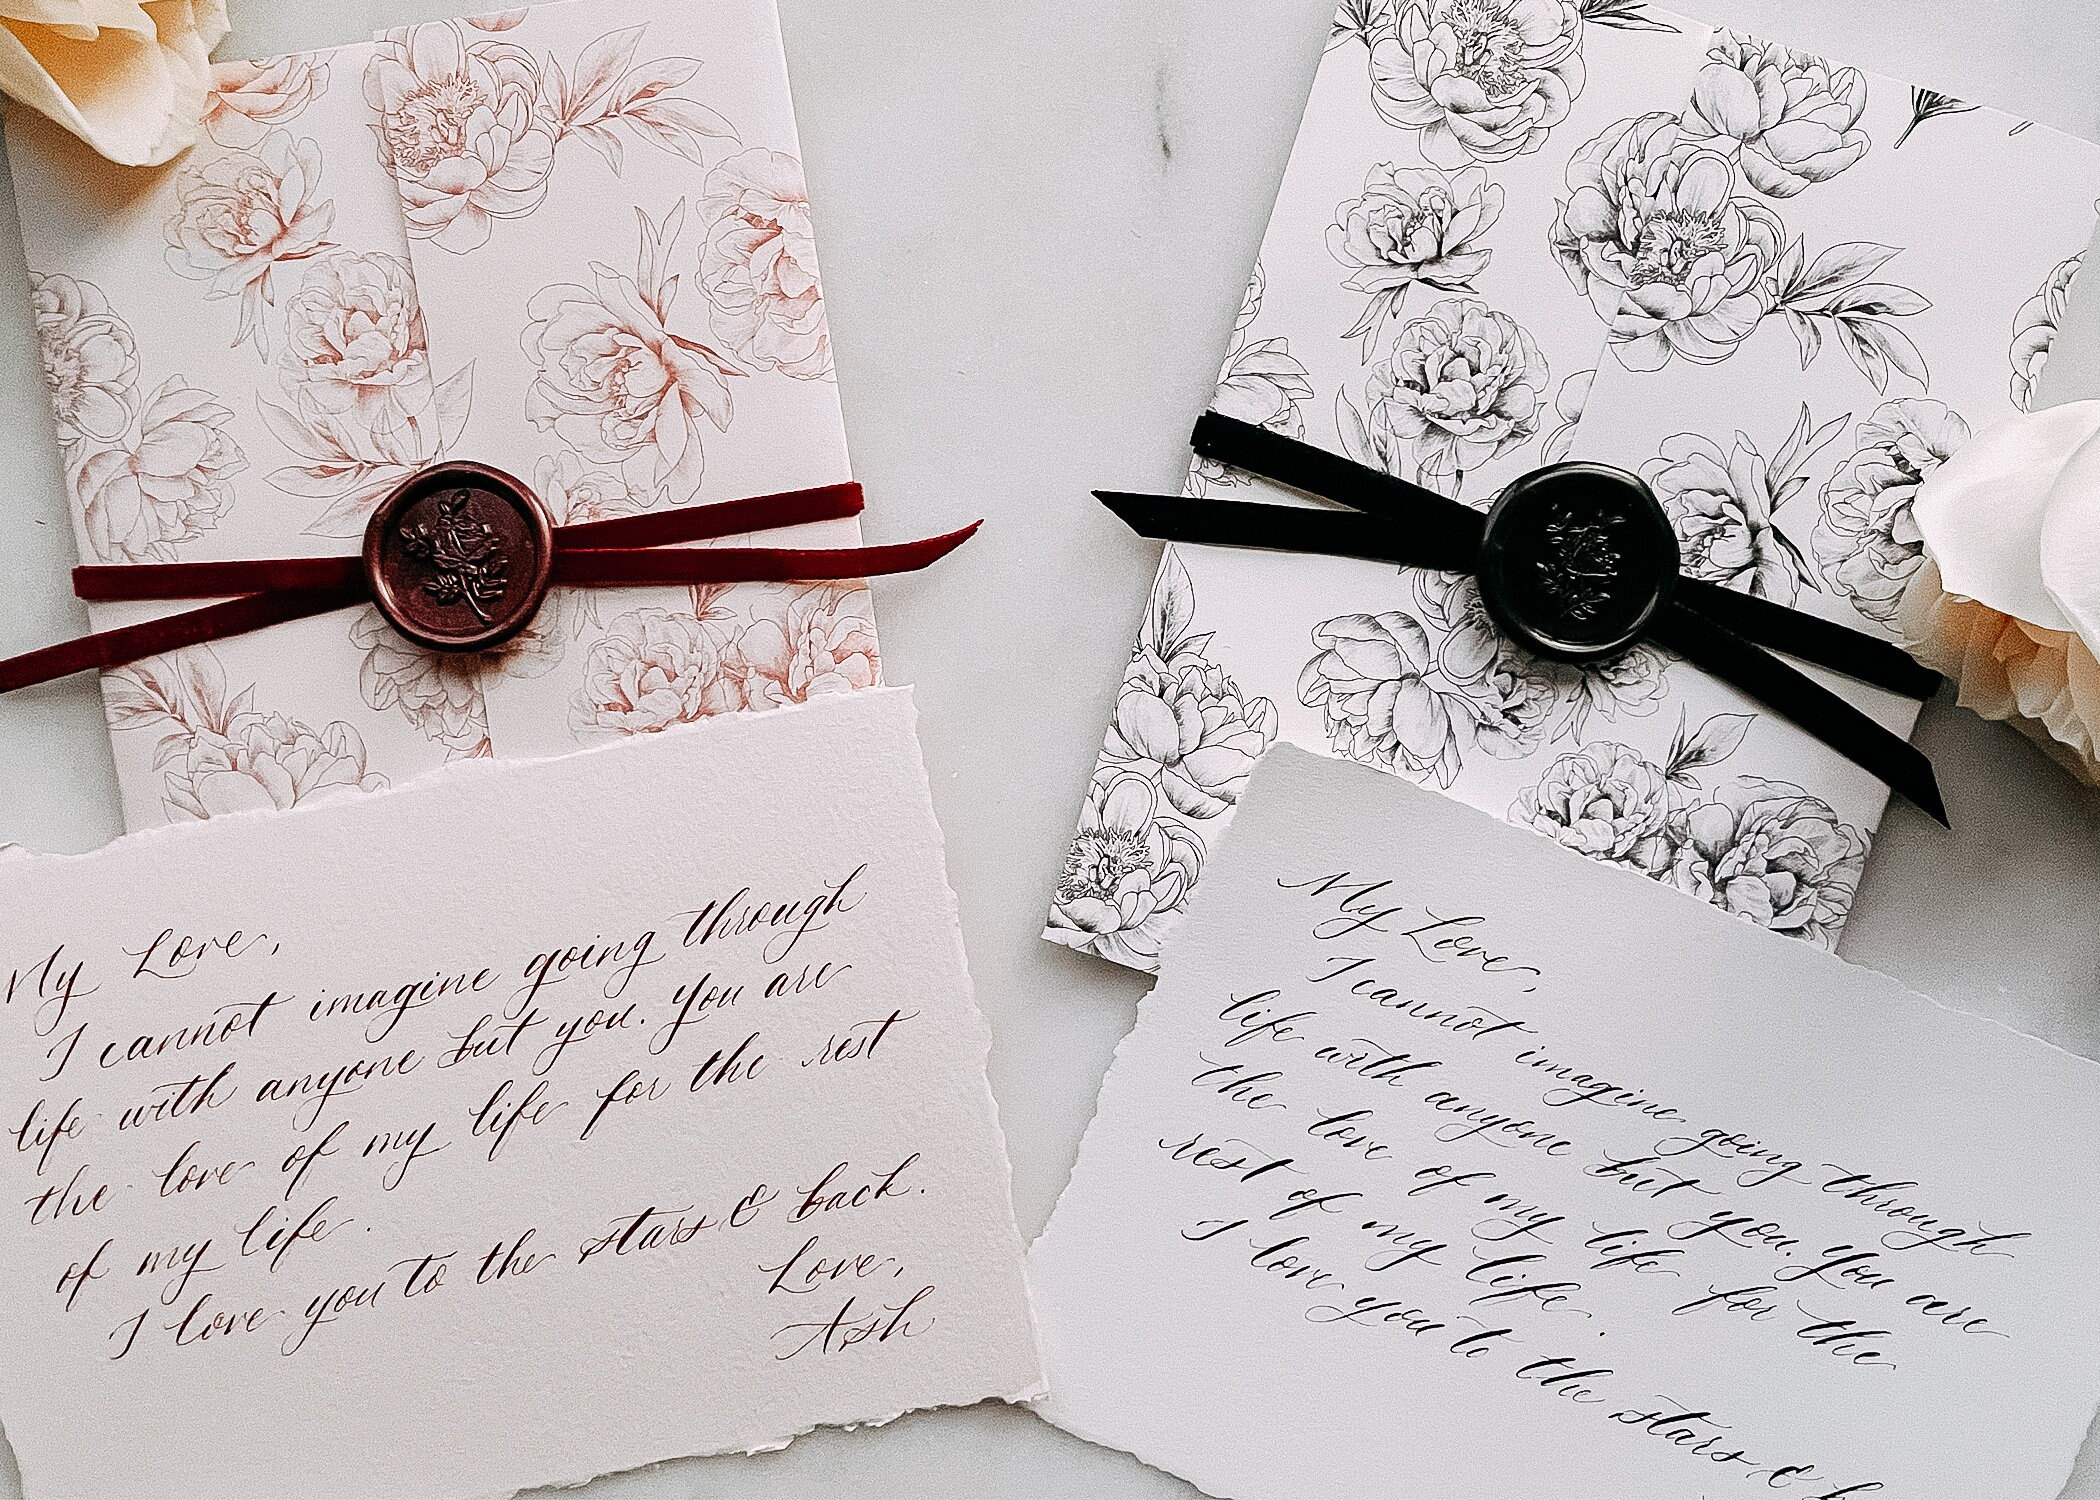 My Love,
I cannot imagine going through
life with anyone but you. You are
the love of my life for the rest
of my life.
I love you to the stars & back.
Love,
Ash
My Love,
I cannot imagine going through
life with anyone but you. You are
the love of my life for the
rest of my life.
I love you to the stars &